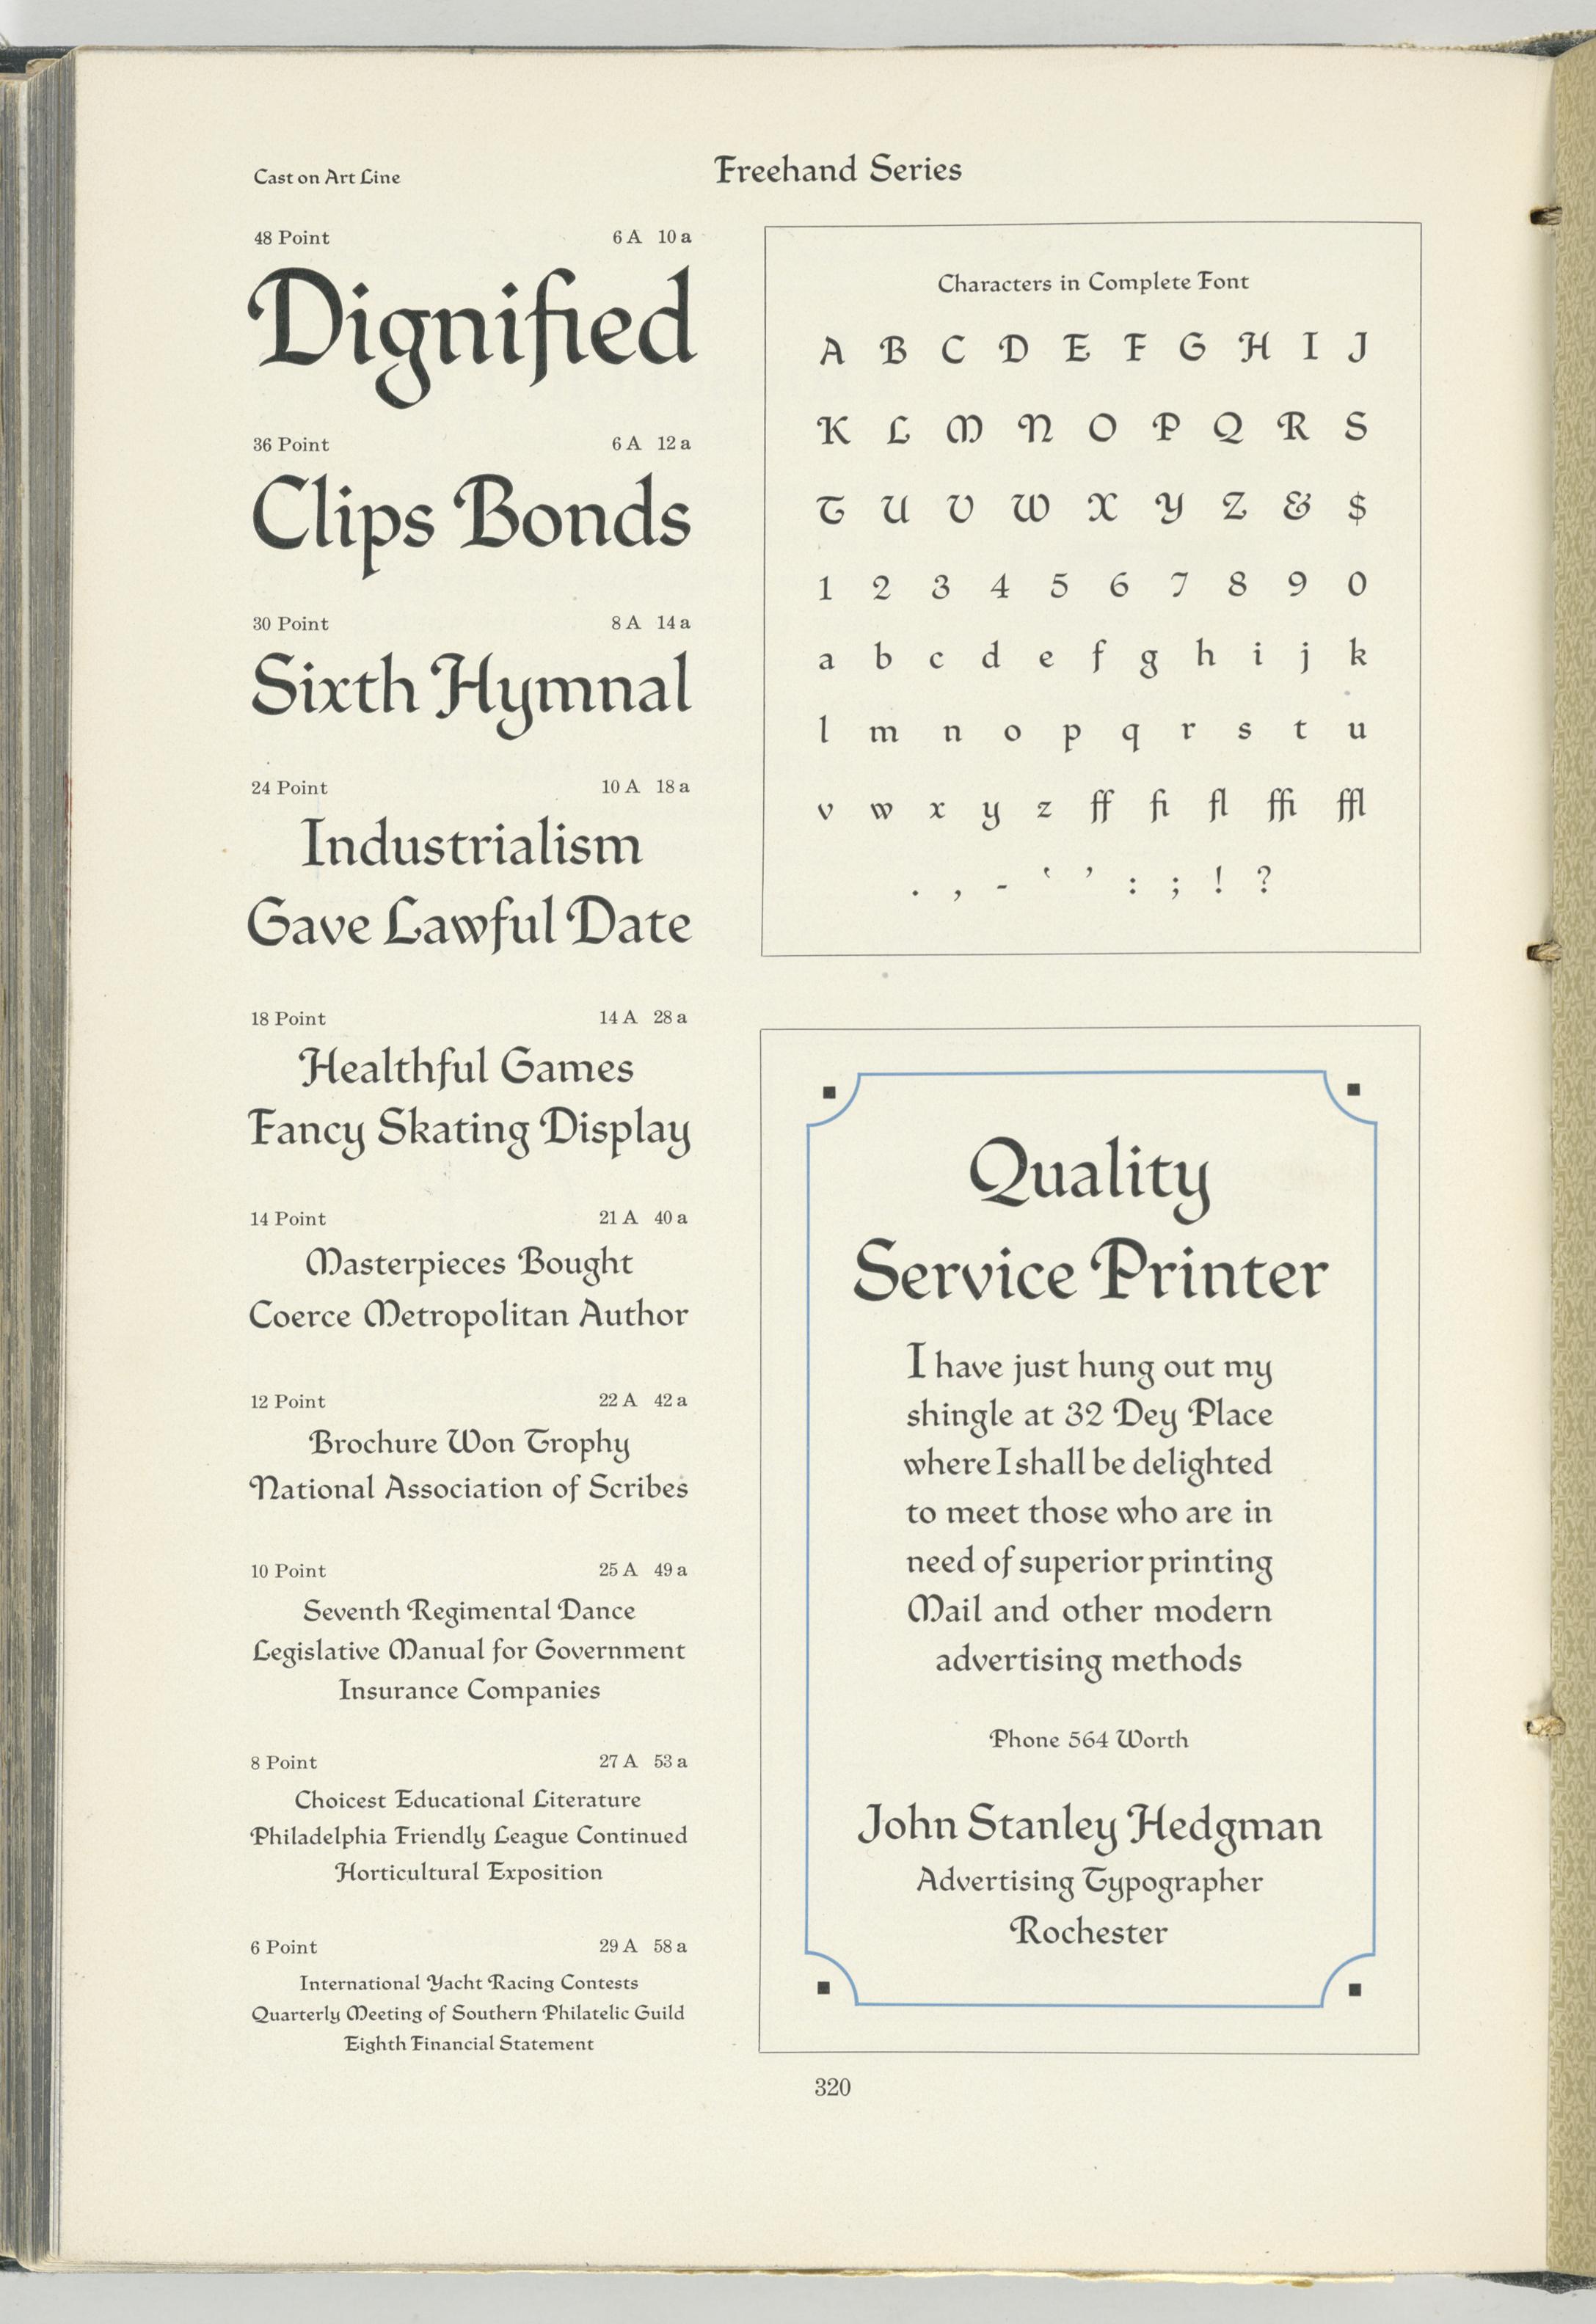 Cast on Art Line
Freehand Series
48 Point 6 A 10 a
Dignified
36 Point 6 A 12 a
Clips Bonds
30 Point 8 A 14 a
Sixth Hymnal
24 Point 10 A 18 a
Industrialism
Gave Lawful Date
18 Point 14 A 28 a
Healthful Games
Fancy Skating Display
14 Point 21 A 40 a
Masterpieces Bought
Coerce Metropolitan Author
12 Point 22 A 42 a
Brochure Won Trophy
National Association of Scribes
10 Point 25 A 49 a
Seventh Regimental Dance
Legislative Manual for Government
Insurance Companies
8 Point 27 A 53 a
Choicest Educational Literature
Philadelphia Friendly League Continued
Horticultural Exposition
6 Point 29 A 58 a
International Yacht Racing Contests
Quarterly Meeting of Southern Philatelic Guild
Eighth Financial Statement
Characters in Complete Font
A B C D E F G H I J
K L M N O P Q R S
T U V W X Y Z & $
1 2 3 4 5 6 7 8 9 0
a b c d e f g h i j k
l m n o p q r s t u
v w x y z ff fi fl ffi ffl
. , - ‘ ’ : ; ! ?
Quality
Service Printer
I have just hung out my
shingle at 32 Dey Place
where I shall be delighted
to meet those who are in
need of superior printing
Mail and other modern
advertising methods
Phone 564 Worth
John Stanley Hedgman
Advertising Typographer
Rochester
320